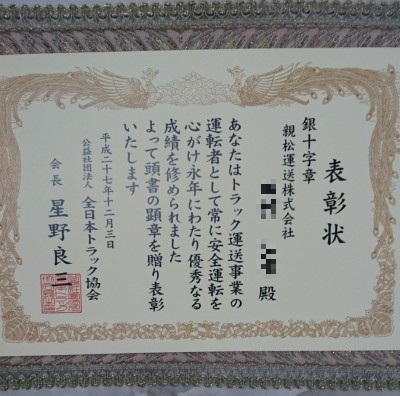 表彰状
銀十字章
親松運送株式会社
殿
あなたはトラック運送事業の
運転者として常に安全運転を
心がけ永年にわたり優秀なる
成績を修められました
よって頭書の顕章を贈り表彰
いたします
平成二十七年十二月三日
公益社団法人 全日本トラック協会
会長 星野良三